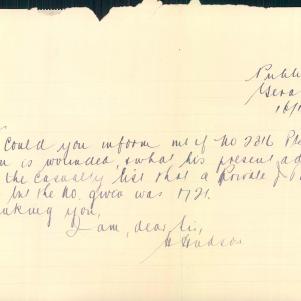 Publi
Gera
16/1
Could you inform me if No 2216 P
is wounded, & what his present ad
the Casualty list that a Private J
but the No. given was 1721.
nking you,
I am, dear Sir,
H Hudson